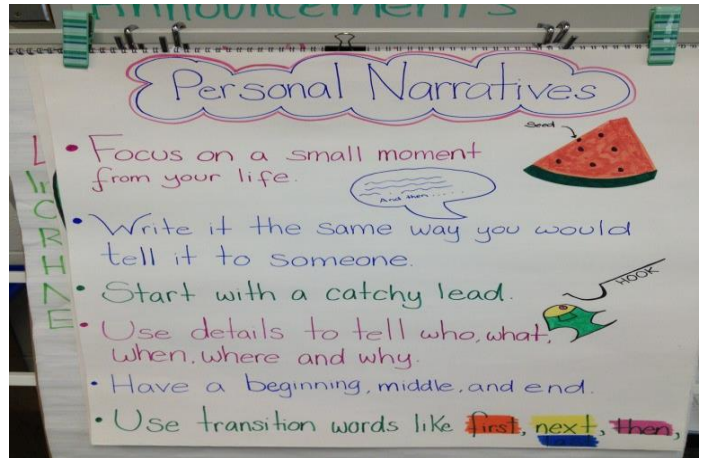 Announcements
Personal Narratives
Seed
• Focus on a small moment
from your life.
And then......
• Write it the same way you would
tell it to someone.
HOOK
• Start with a catchy lead.
• Use details to tell who, what,
when, where and why.
• Have a beginning, middle, and end.
• Use transition words like first, next, then,